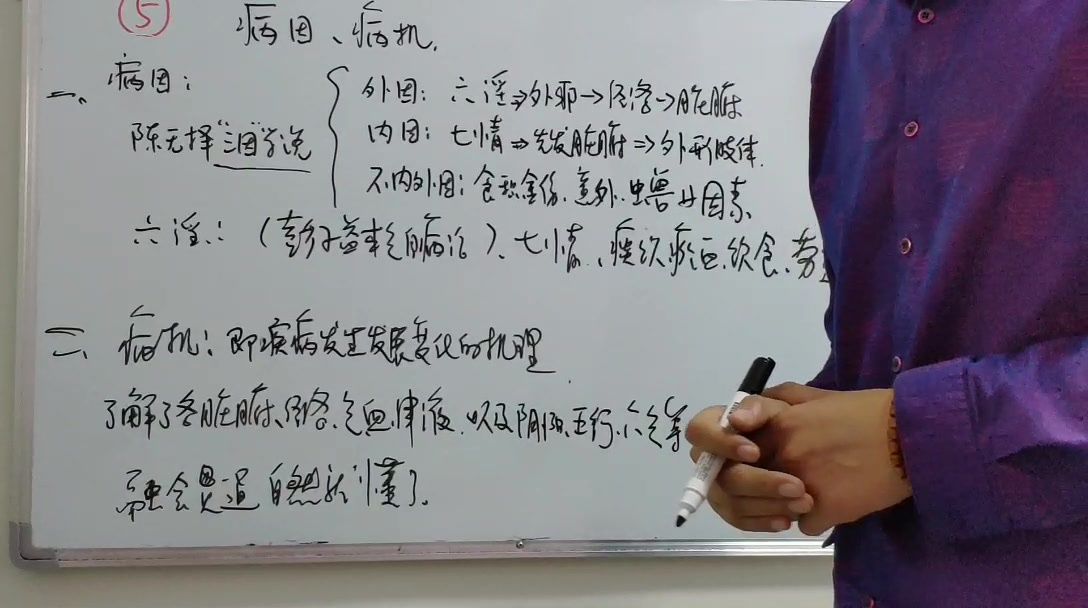 ⑤ 病因、病机.
一、病因:
陈无择"三因"学说
外因: 六淫⇒外邪→经络→脏腑
内因: 七情⇒先发脏腑⇒外形肢体.
不内外因: 食积金伤、意外、虫兽 因素
六淫: (彭子益本气自病论)、七情、痰饮瘀血、饮食、劳
二、病机: 即疾病发生发展变化的机理.
了解了各脏腑、经络、气血、津液、以及阴阳、五行、六气等
融会贯通 自然就懂了.